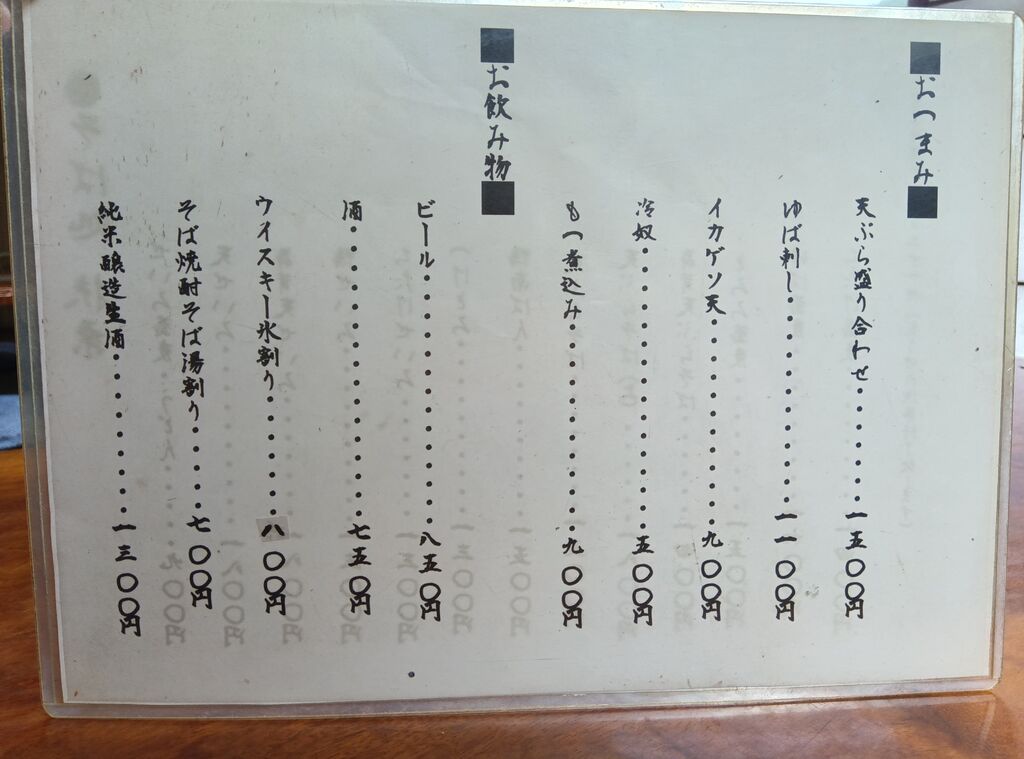 ■おつまみ■
天ぷら盛り合わせ・・・・・・・・一五〇〇円
ゆば刺し・・・・・・・・・・・・一一〇〇円
イカゲソ天・・・・・・・・・・・九〇〇円
冷奴・・・・・・・・・・・・・・五〇〇円
もつ煮込み・・・・・・・・・・・九〇〇円
■お飲み物■
ビール・・・・・・・・・・・・・八五〇円
酒・・・・・・・・・・・・・・・七五〇円
ウイスキー氷割り・・・・・・・八〇〇円
そば焼酎そば湯割り・・・・・七〇〇円
純米醸造生酒・・・・・・・・・一三〇〇円